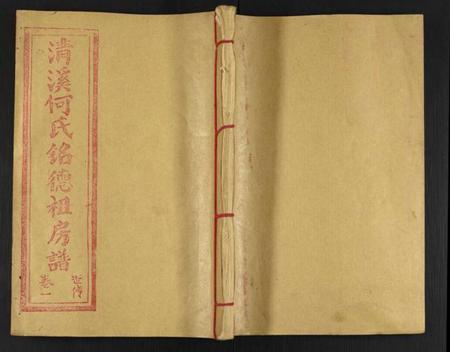 清溪何氏銘德祖房譜
世传
卷一